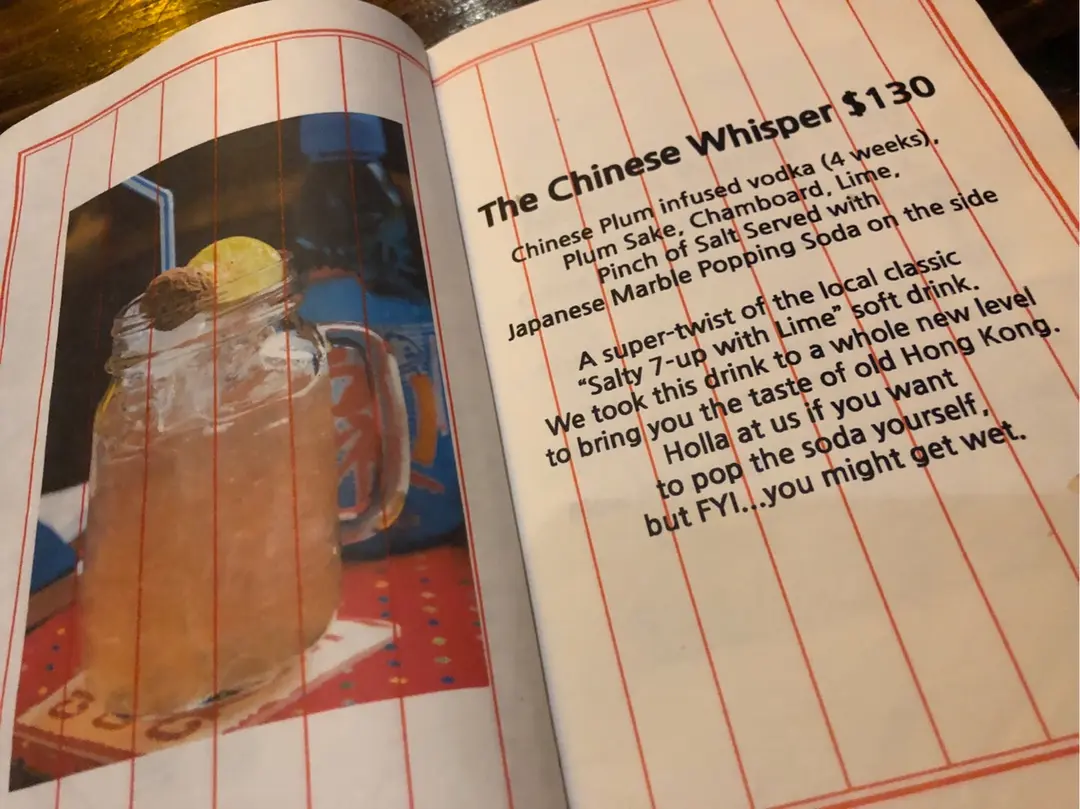 The Chinese Whisper $130
Chinese Plum infused vodka (4 weeks),
Plum Sake, Chamboard, Lime,
Pinch of Salt Served with
Japanese Marble Popping Soda on the side
A super-twist of the local classic
“Salty 7-up with Lime” soft drink.
We took this drink to a whole new level
to bring you the taste of old Hong Kong.
Holla at us if you want
to pop the soda yourself,
but FYI...you might get wet.